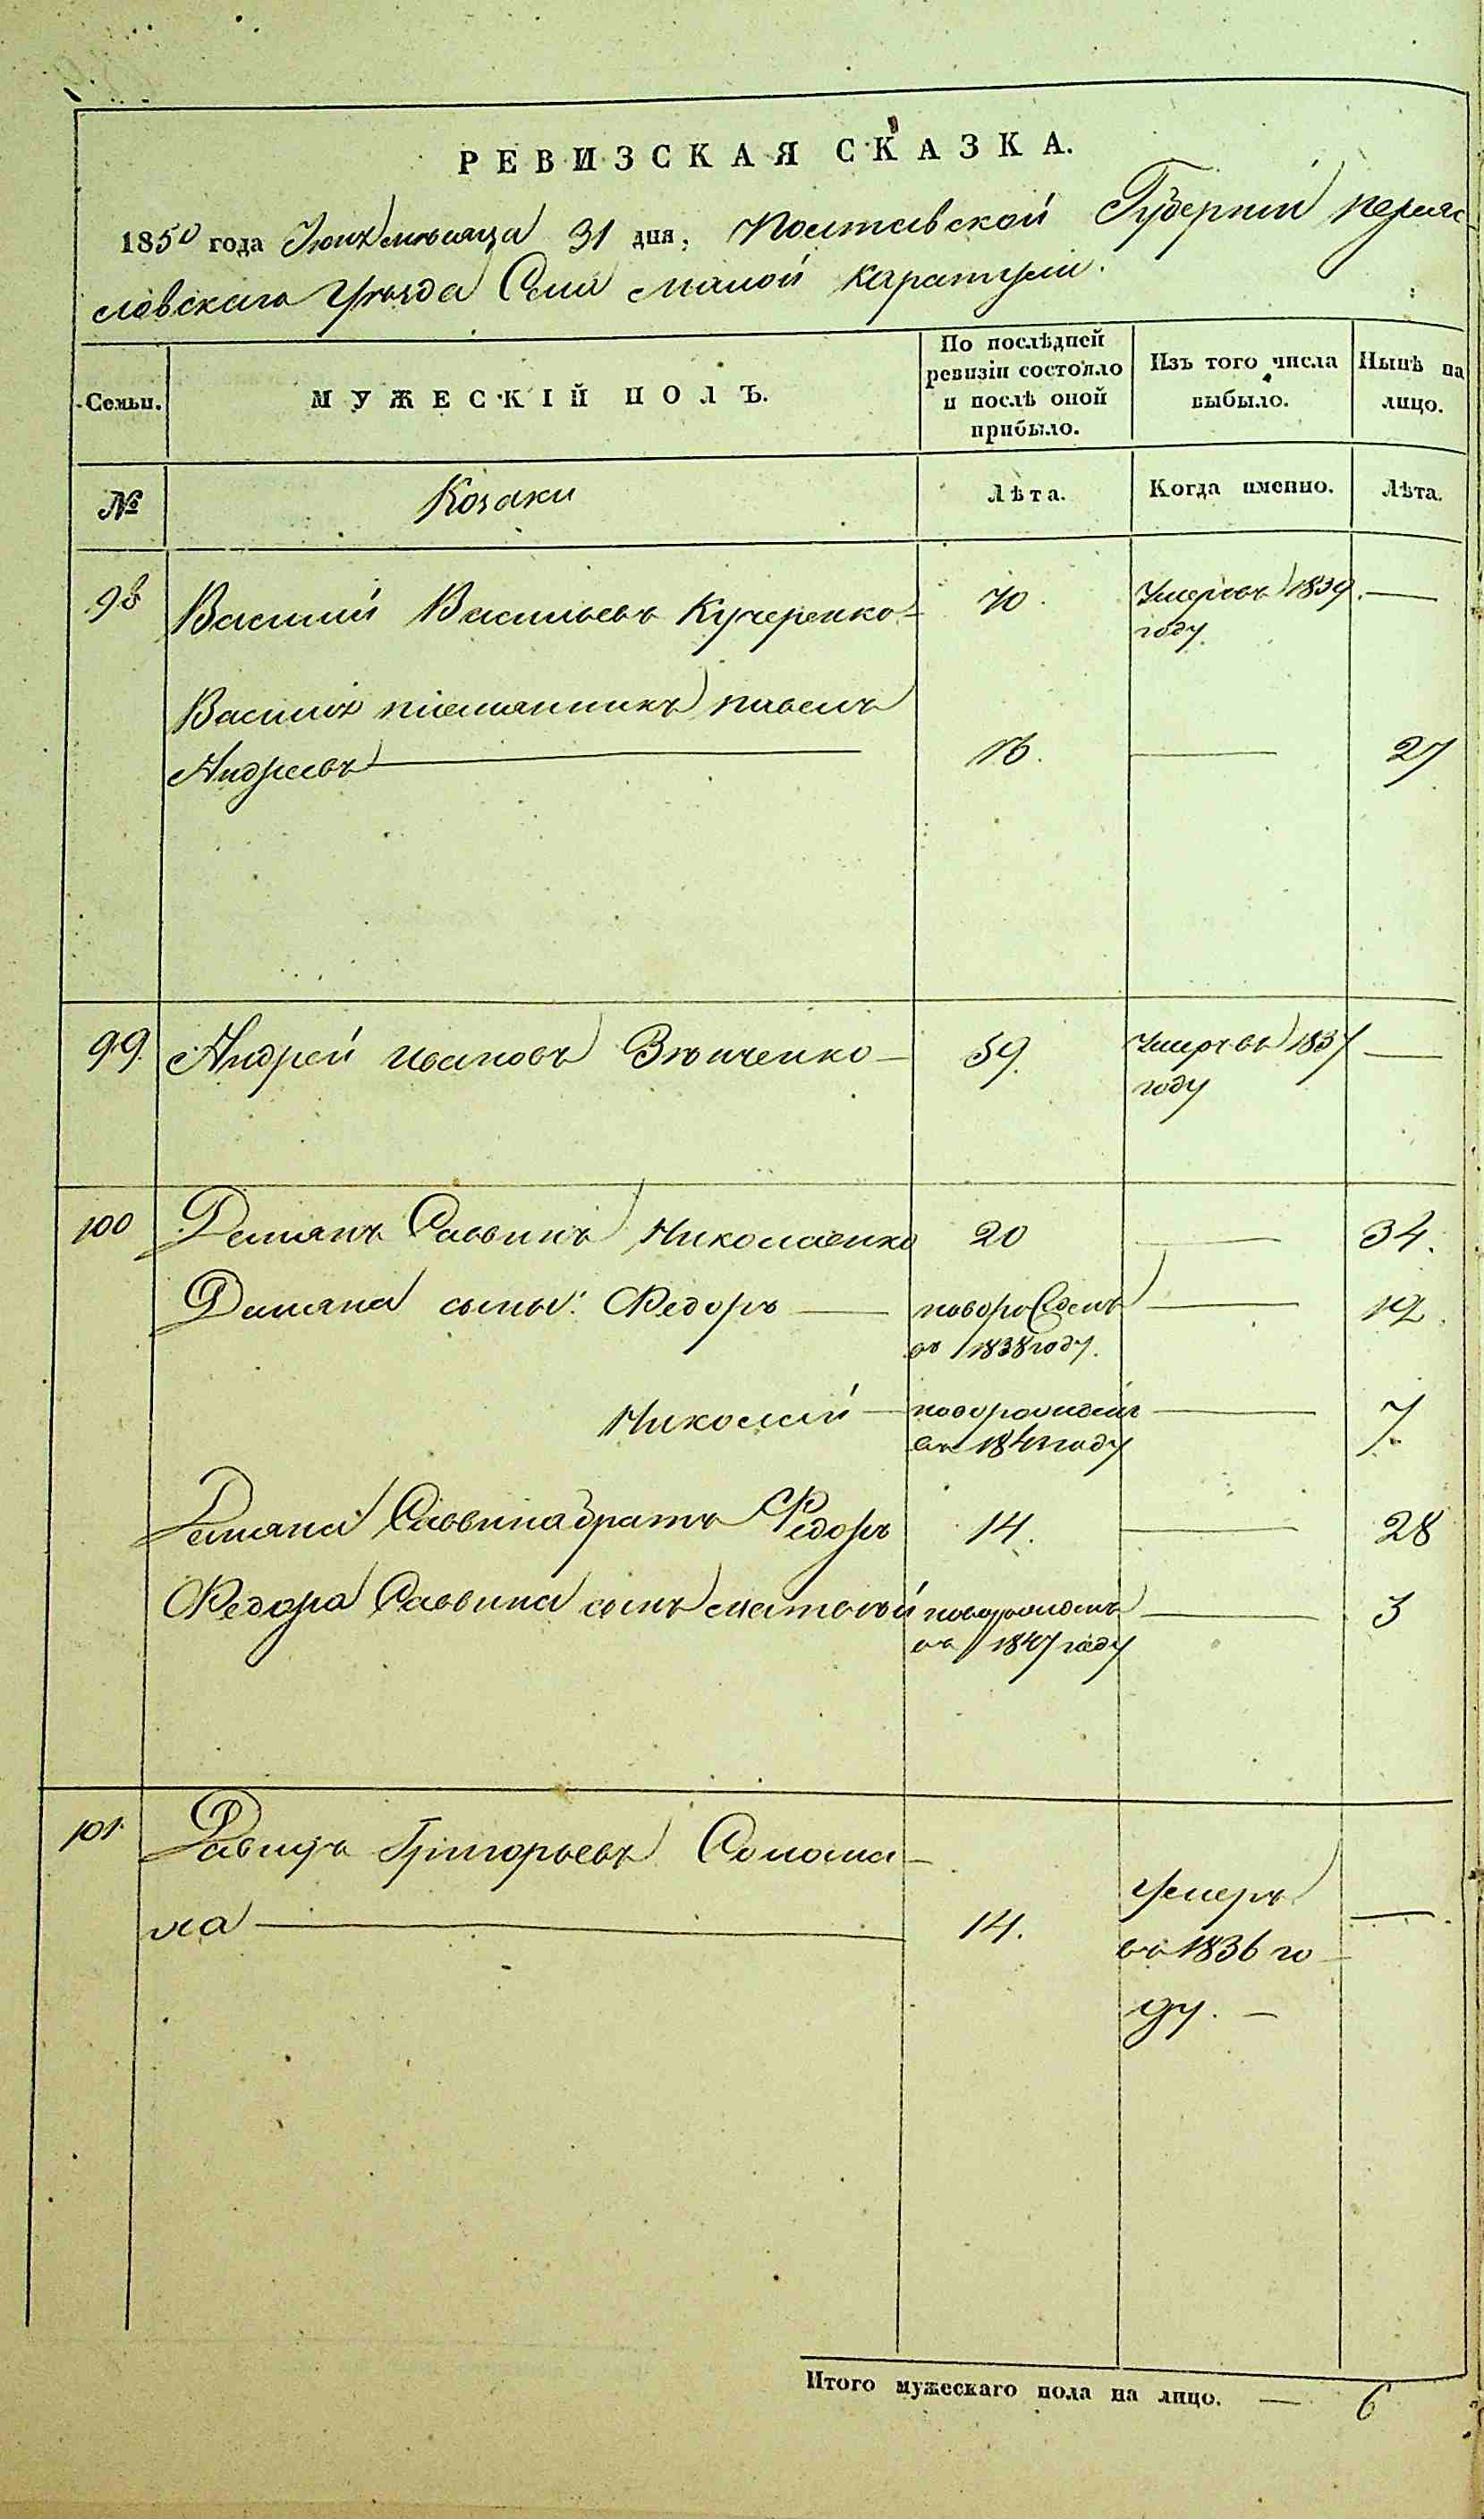 РЕВИЗСКАЯ СКАЗКА.
1850 года Июля месяца 31 дня, Полтавской Губернии переяс
лавскаго Уѣзда Села малой каратули.
Семьи.
МУЖЕСКІЙ ПОЛЪ.
По послѣдней
ревизіи состояло
и послѣ оной
прибыло.
Изъ того числа
выбыло.
Нынѣ на
лицо.
№
Козаки
Лѣта.
Когда именно.
Лѣта.
98 Василий Васильевъ Кучеренко – 70. Умеръ въ 1839 —
году
Василія племянникъ павелъ
Андреевъ — 13. — 27
99. Андрей ивановъ Зѣнченко – 59. Умеръ въ 1837 —
году
100 Демянъ Саввинъ Николаенко 20 — 34.
Демяна сыны: Федоръ — новорожденъ — 12.
въ 1838 году.
Николай — новорожденъ — 7.
въ 1843 году
Демяна Саввина братъ Федоръ 14. — 28
Федора Саввина сынъ матвѣй новорожденъ — 3
въ 1847 году
101. Давидъ Григорьевъ Солома-
ха — 14. Умеръ —
въ 1836 го-
ду. –
Итого мужескаго пола на лицо. — 6